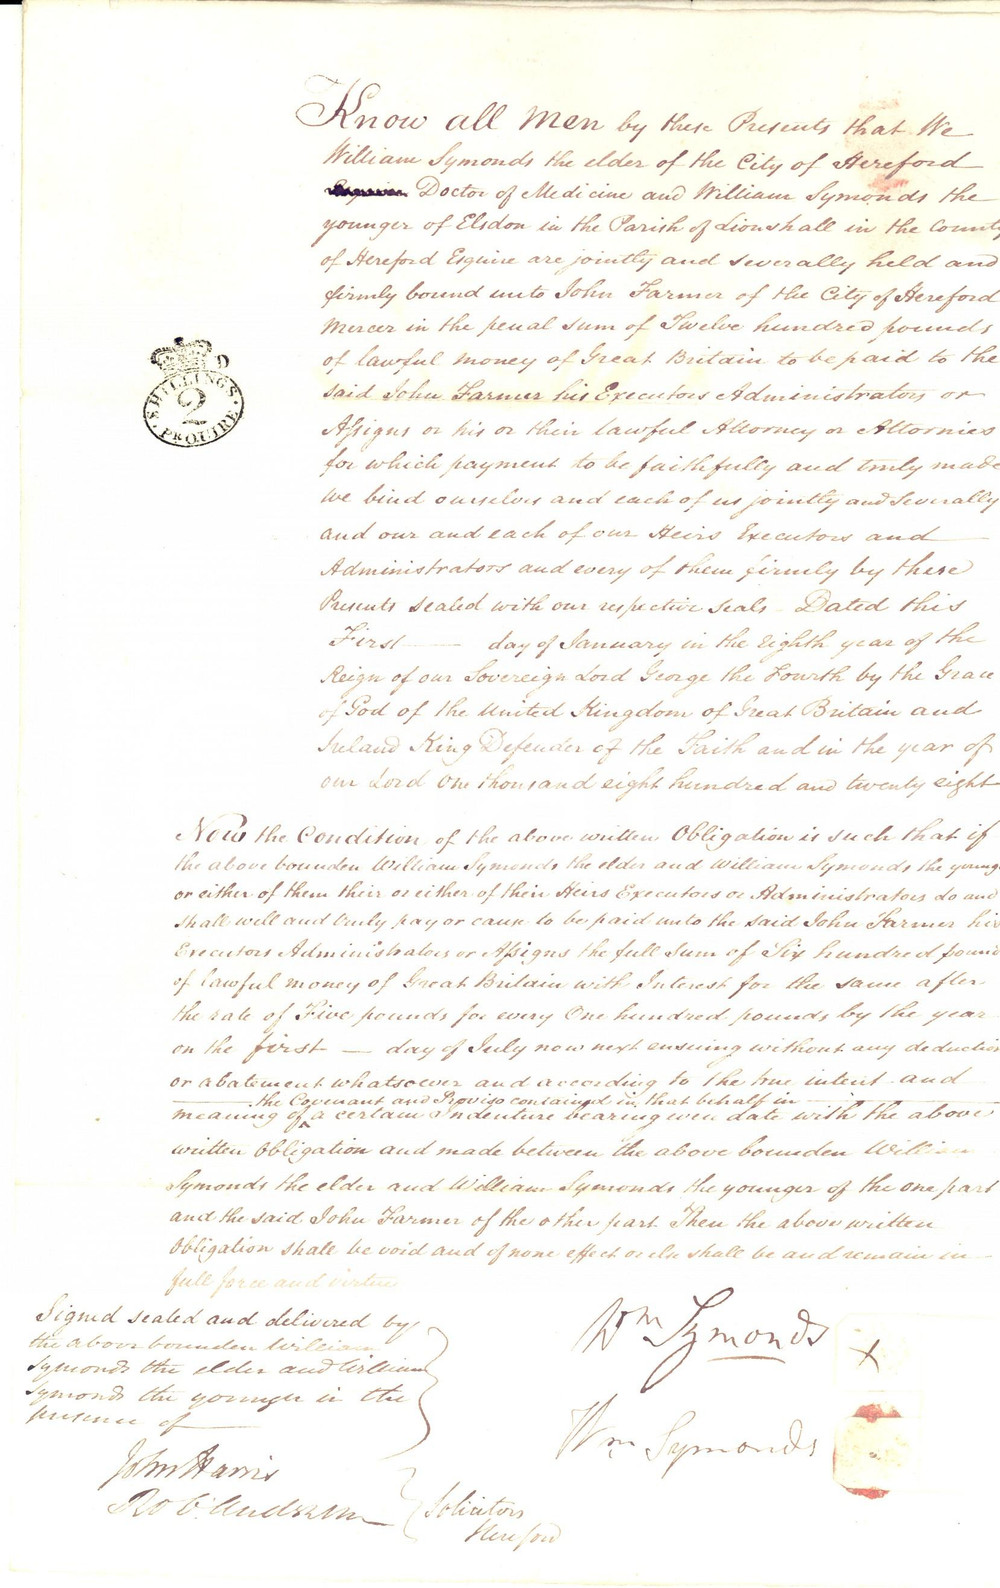 Know all Men by these Presents that We
William Symonds the elder of the City of Hereford
Doctor of Medicine and William Symonds the
younger of Elsdon in the Parish of Lionshall in the County
of Hereford Esquire are jointly and severally held and
firmly bound unto John Farmer of the City of Hereford
Mercer in the penal sum of Twelve hundred pounds
of lawful money of Great Britain to be paid to the
said John Farmer his Executors Administrators or
Assigns or his or their lawful Attorney or Attornies
for which payment to be faithfully and truly made
we bind ourselves and each of us jointly and severally
and our and each of our Heirs Executors and
Administrators and every of them firmly by these
Presents sealed with our respective seals Dated this
First day of January in the Eighth year of the
Reign of our Sovereign Lord George the Fourth by the Grace
of God of the United Kingdom of Great Britain and
Ireland King Defender of the Faith and in the year of
our Lord One thousand eight hundred and twenty eight
SHILLINGS
2
PR QUIRE
Now the Condition of the above written Obligation is such that if
the above bounden William Symonds the elder and William Symonds the young
or either of them their or either of their Heirs Executors or Administrators do and
shall well and truly pay or cause to be paid unto the said John Farmer his
Executors Administrators or Assigns the full Sum of Six hundred pound
of lawful money of Great Britain with Interest for the same after
the rate of Five pounds for every One hundred pounds by the year
on the first — day of July now next ensuing without any deduction
or abatement whatsoever and according to the true intent and
the Covenant and Proviso contained in that behalf in
meaning of a certain Indenture bearing even date with the above
written Obligation and made between the above bounden William
Symonds the elder and William Symonds the younger of the one part
and the said John Farmer of the other part Then the above written
Obligation shall be void and of none effect or else shall be and remain in
full force and virtue
Signed sealed and delivered by
the above bounden William
Symonds the elder and William
Symonds the younger in the
presence of
John Harris
Solicitors
Hereford
Wm Symonds
Wm Symonds